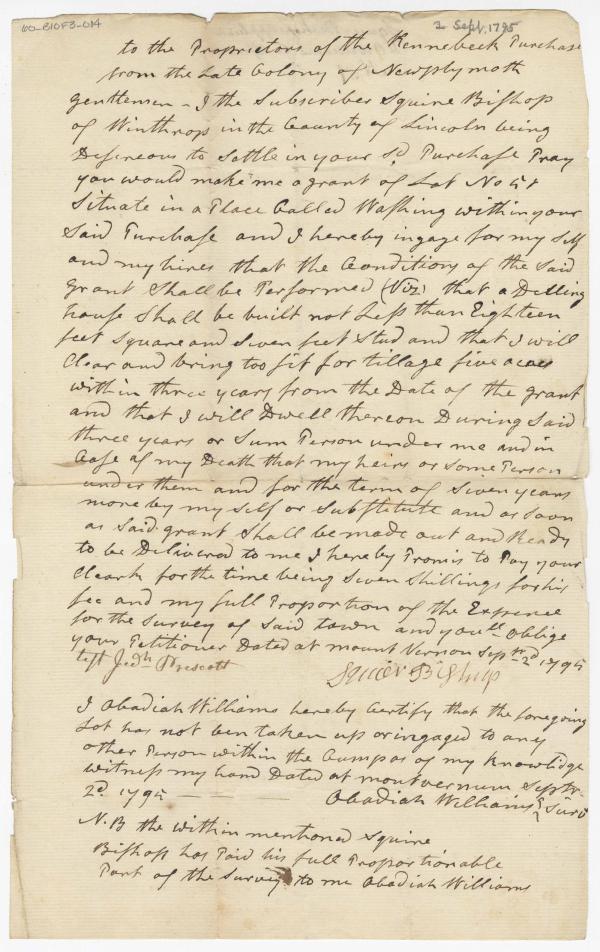 00-B10F3-014
2 Sept. 1795
to the Proprietors of the Kennebeck Purchase
from the Late Colony of Newplymoth
gentlemen - I the Subscriber Squire Bishop
of Winthrop in the County of Lincoln being
Desireous to Sattle in your Sd Purchase Pray
you would make me a grant of Lot No
Situate in a Place Called Washing within your
Said Purchase and I hereby ingage for my Self
and my hires that the Conditions of the Said
grant Shall be Performed (Viz) that a Delling
house Shall be built not Less than Eighteen
feet Square and Seven feet Stud and that I will
Clear and bring too fit for tillage five acres
within three years from the Date of the grant
and that I will Dwell thereon During Said
three years or Sum Person under me and in
Case of my Death that my heirs or Some Person
under them and for the term of Seven years
more by my Self or Substitute and as Soon
as Said grant Shall be made out and Ready
to be Delivered to me I hereby Promis to Pay your
Cleark for the time being Seven Shillings for his
fee and my full Proportion of the Expence
for the Survey of Said town and youll oblige
your Petitioner Dated at mount Vernon Septr 2d 1795
test Jedh Prescott
Squier Bishup
I Obadiah Williams hereby Certify that the foregoing
Lot has not ben taken up or ingaged to any
other Person within the Cumpas of my Knowlidge
witness my hand Dated at montvernum Septr
2d 1795
Obadiah Williams Surv
N.B the within mentioned Squire
Bishop has Paid his full Proportionable
Part of the Survey to me Obadiah Williams